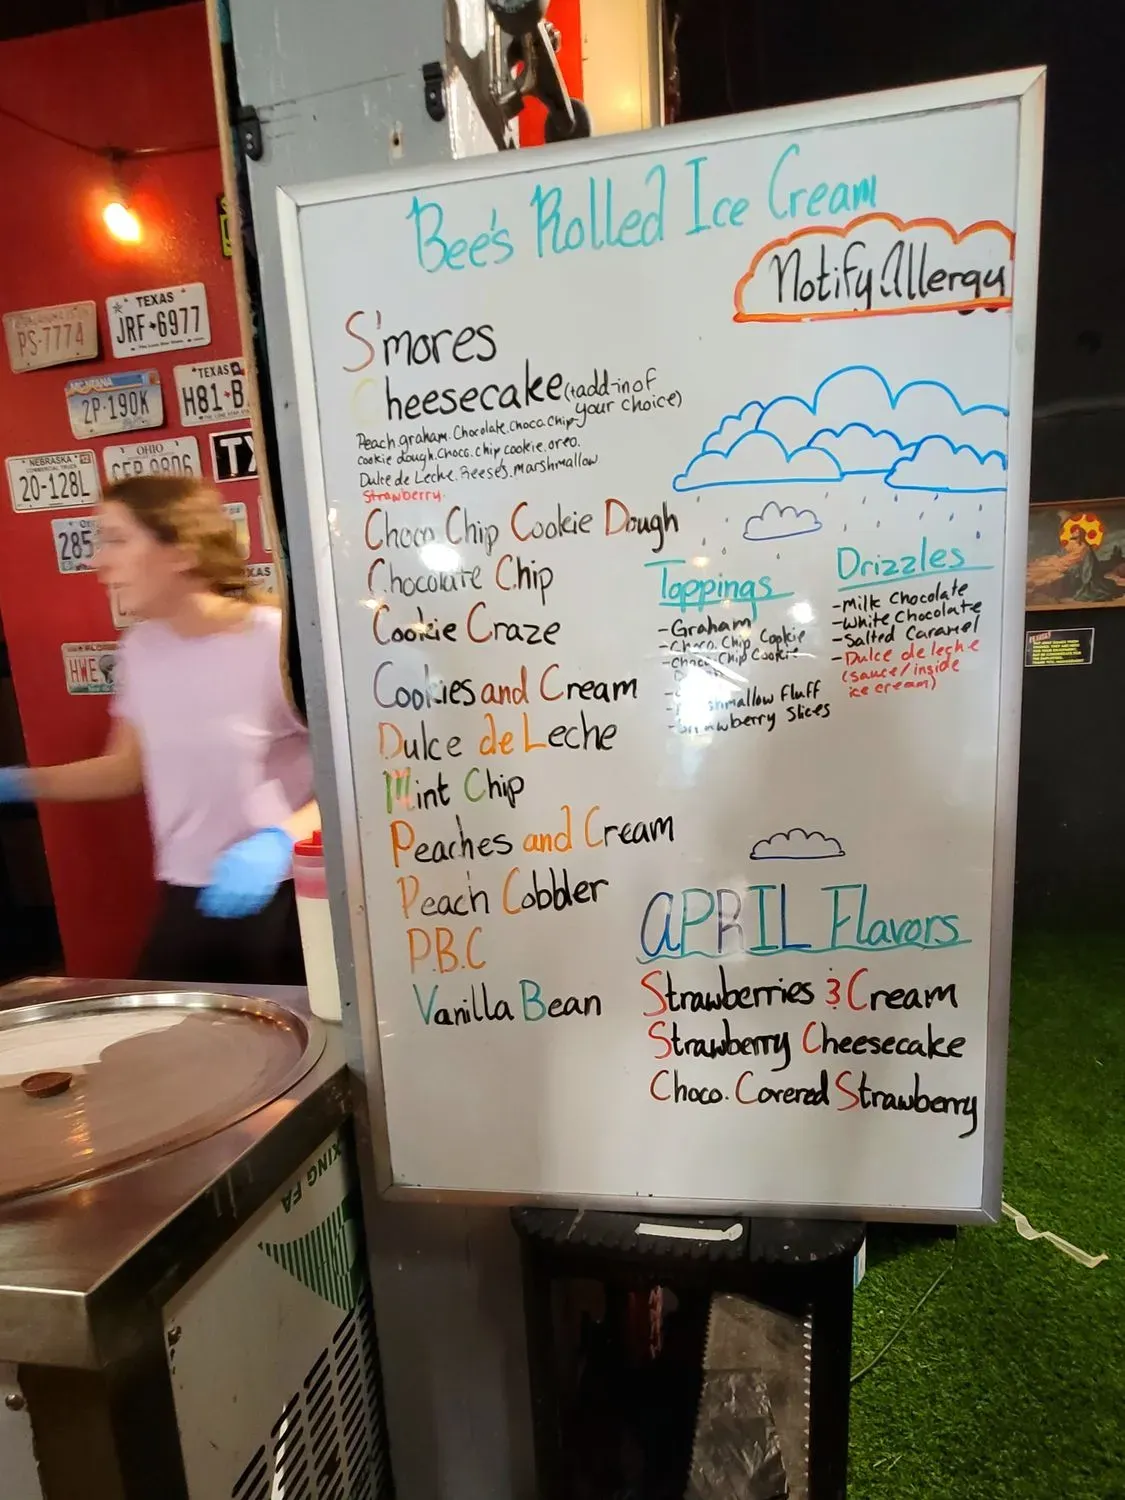 Bee's Rolled Ice Cream
Notify Allergy
S'mores
Cheesecake (+add-in of
your choice)
Peach.graham.Chocolate.Choco.Chip
cookie dough.Choco.chip cookie.oreo.
Dulce de Leche.Reese's.marshmallow
Strawberry.
Choco Chip Cookie Dough
Chocolate Chip
Cookie Craze
Cookies and Cream
Dulce de Leche
Mint Chip
Peaches and Cream
Peach Cobbler
P.B.C
Vanilla Bean
Toppings
-Graham
-Choco. Chip Cookie
-Choco Chip Cookie
Fluff
-Strawberry Slices
Drizzles
-Milk Chocolate
-White Chocolate
-Salted Caramel
-Dulce de leche
(sauce/inside
ice cream)
APRIL Flavors
Strawberries & Cream
Strawberry Cheesecake
Choco. Covered Strawberry
PS-7774
TEXAS
JRF 6977
MONTANA
2P-190K
TEXAS
H81-B
OHIO
NEBRASKA
20-128L
TX
285
XAS
HWE
XING FA